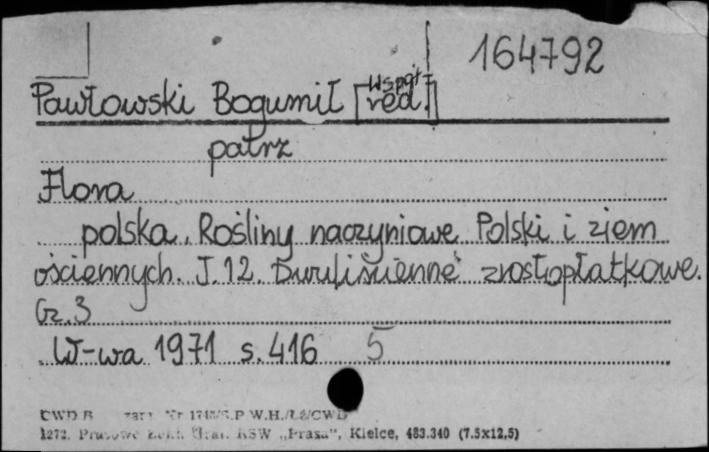 164792
Pawłowski Bogumił [współ. red.]
patrz
Flora
polska. Rośliny naczyniowe Polski i ziem
ościennych. T.12. Dwuliścienne zrosłopłatkowe.
Cz.3
W-wa 1971 s.416 5
CWD zam. Nr P.W.H.
1272. "Prasa", Kielce, 483.340 (7.5x12,5)